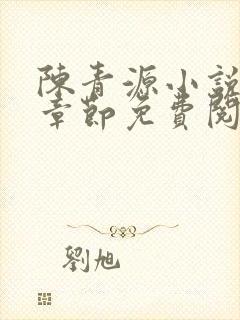 陳青源小說
章節免費閱
劉旭